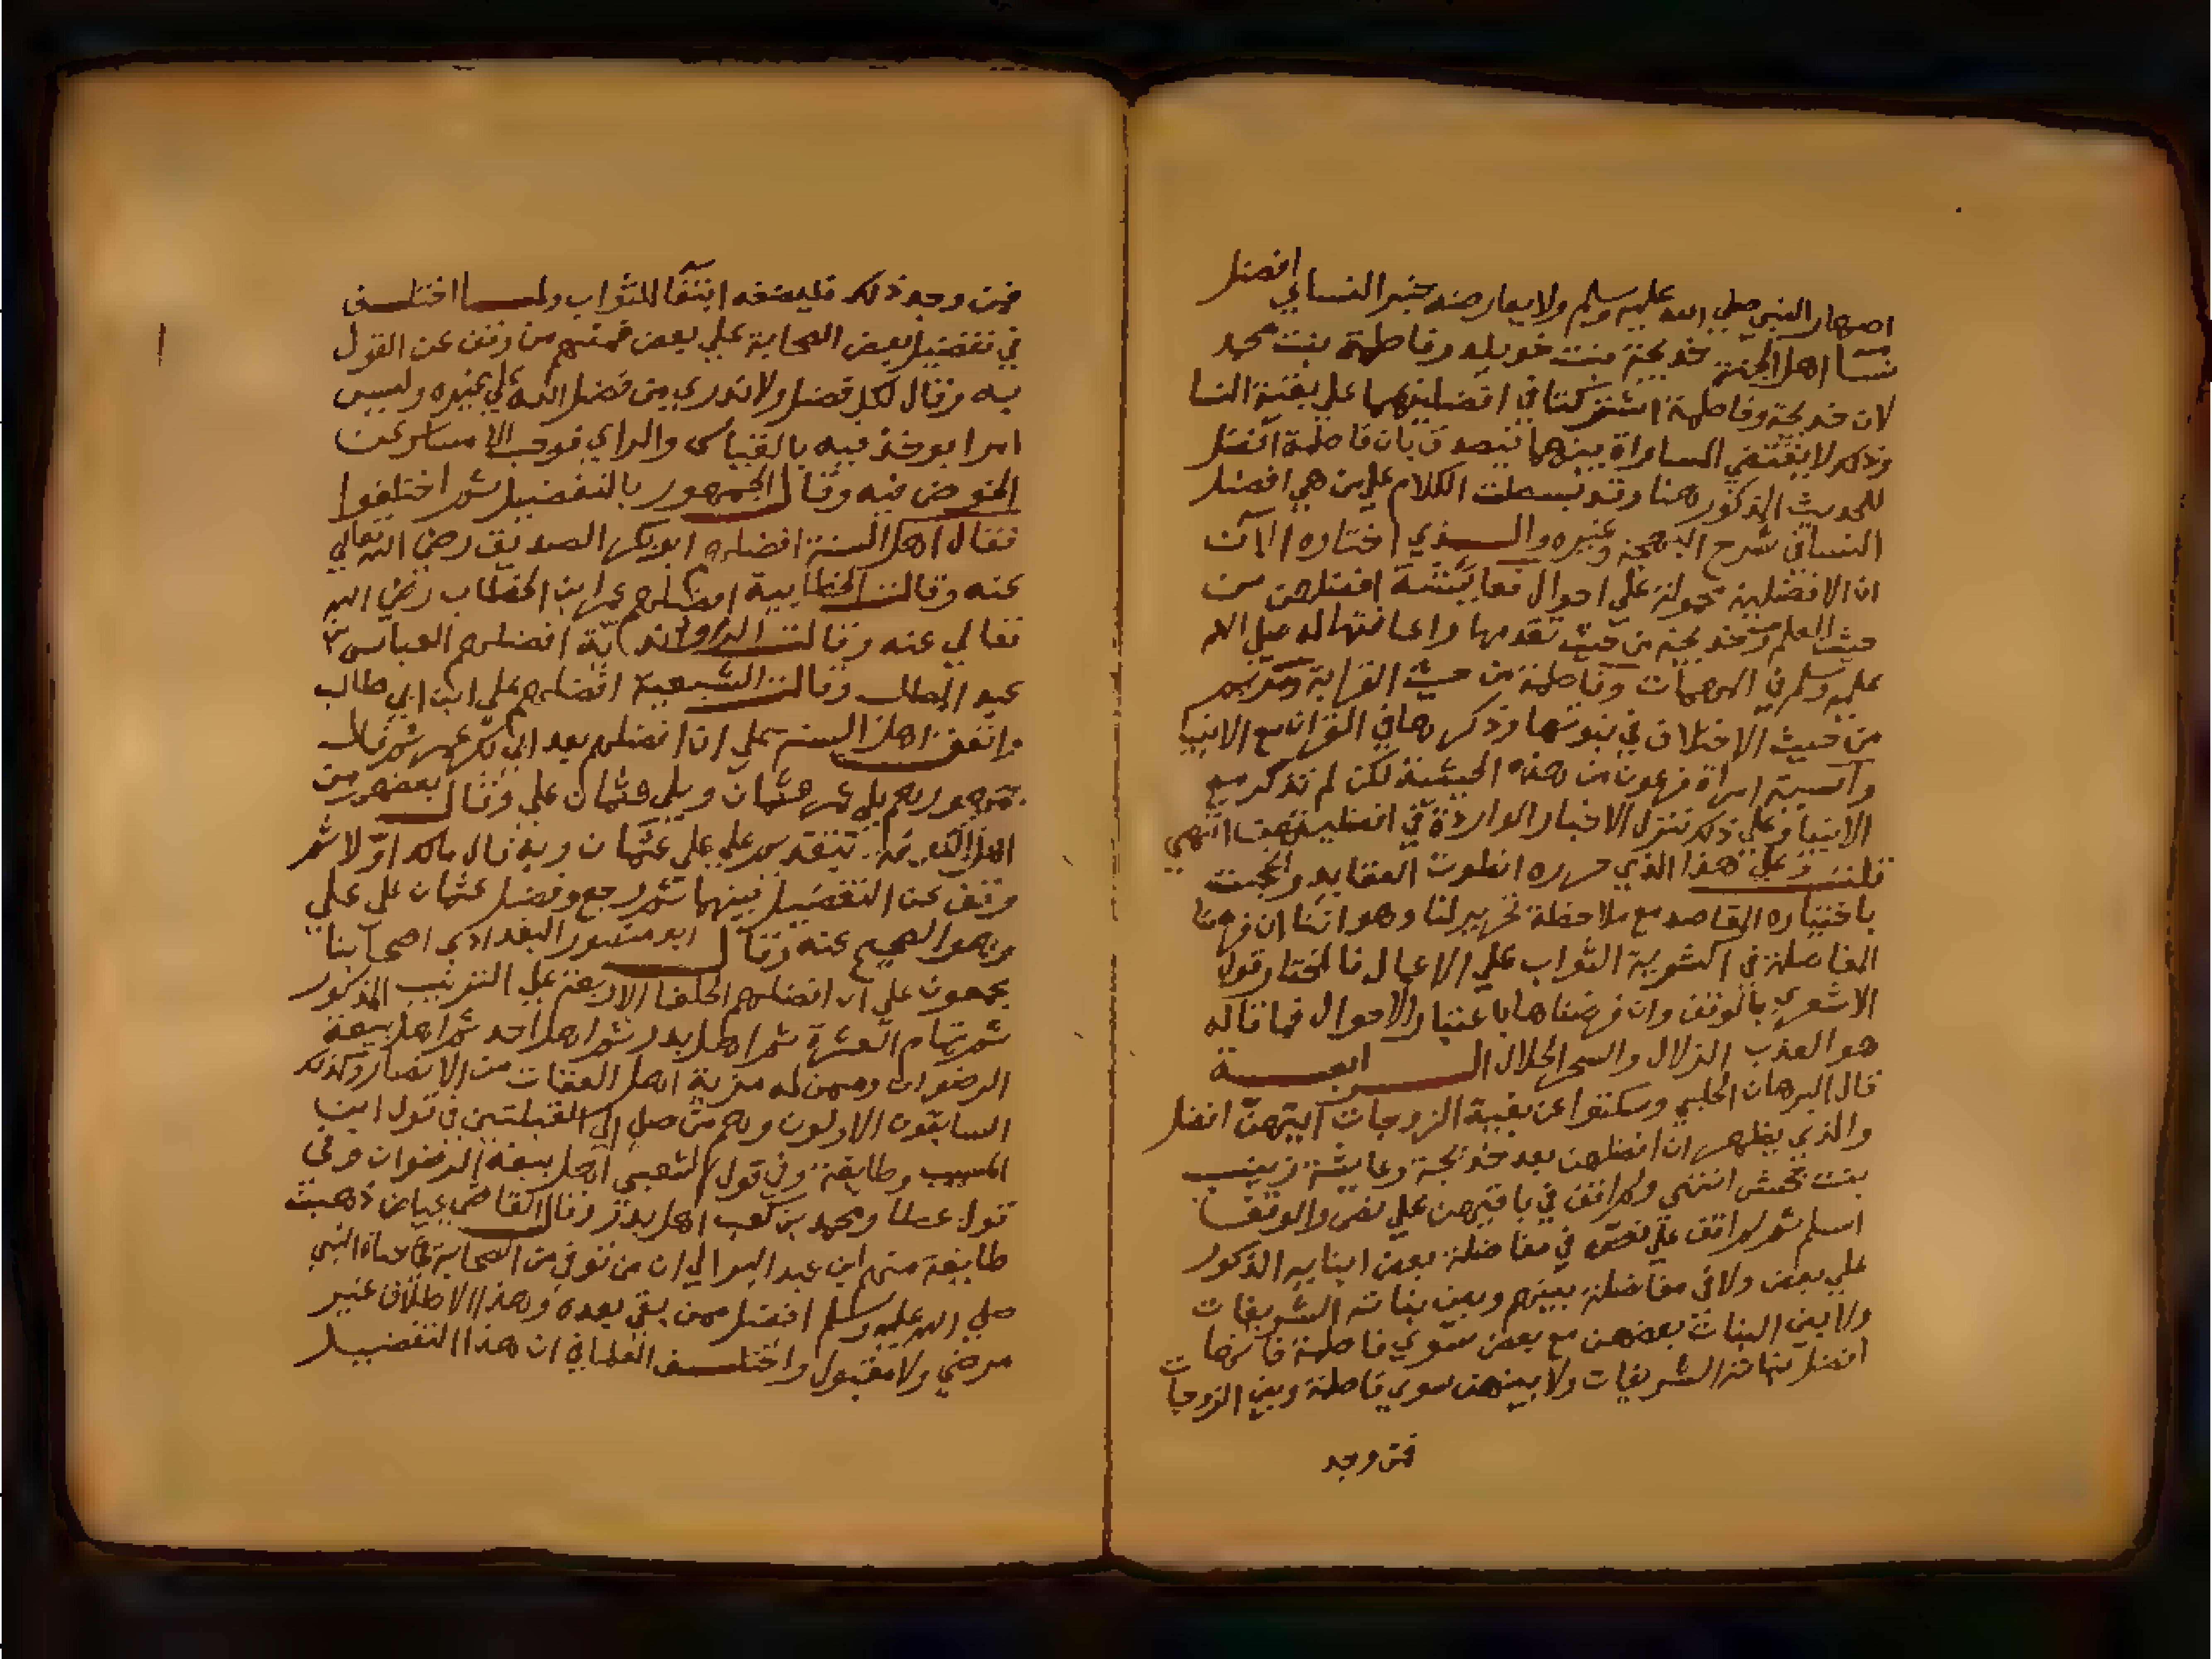 اصهار النبي صلي الله عليه وسلم ولا يعارضه خبر النسائي افضل
نسا اهل الجنة خديجة بنت خويلد وفاطمة بنت محمد
لان خديجة وفاطمة اشتركتا في افضليتهما علي بقية النسا
وذلك لا يقتضي المساواة بينهما فيصدق بان فاطمة افضل
للحديث المذكور هنا وقد بسطت الكلام علي من هي افضل
النسا في شرح البهجة وغيره والذي اختاره الآن
ان الافضلية محمولة علي احوال فعايشة افضلهن من
حيث العلم وخديجة من حيث تقدمها واعانتها له صلي الله
عليه وسلم في المهمات وفاطمة من حيث القرابة ومريم
من حيث الاختلاف في نبوتها وذكرها في القران مع الانبيا
وآسية امراة فرعون من هذه الحيثية لكن لم تذكر مع
الانبيا وعلي ذلك تنزل الاخبار الواردة في افضليتهن انتهي
قلت وعلي هذا الذي حرره انطوت العقايد وانجبت
باختياره المقاصد مع ملاحظة تحرير لنا وهو اننا ان فرضنا
المفاضلة في اكثرية الثواب علي الاعمال فالمختار قول
الاشعري بالوقف وان فرضناها باعتبار الاحوال فما قاله
هو العذب الزلال والسحر الحلال الرابعة
قال البرهان الحلبي وسكتوا عن بقية الزوجات ايتهن افضل
والذي يظهر ان افضلهن بعد خديجة وعايشة زينب
بنت جحش انتهي ولم اقف في باقيهن علي نص والوقف
اسلم ثم لم اقف علي نص في مفاضلة بعض ابنايه الذكور
علي بعض ولا في مفاضلة بينهم وبين بناته الشريفات
ولا بين البنات بعضهن مع بعض سوي فاطمة فانها
افضل بناته الشريفات ولا بينهن سوي فاطمة وبين الزوجات
فمن وجد
فمن وجد ذلك فليضفه ابتغآ للثواب ولما اختلف
في تفضيل بعض الصحابة علي بعض فمنهم من وقف عن القول
به وقال لكل فضل ولا ندري من فضل الله علي غيره وليس
امرا يوخذ فيه بالقياس والراي فوجب الامساك عن
الخوض فيه وقال الجمهور بالتفضيل ثم اختلفوا
فقال اهل السنة افضلهم ابو بكر الصديق رضي الله تعالي
عنه وقالت الخطابية افضلهم عمر ابن الخطاب رضي الله
تعالي عنه وقالت الراوندية افضلهم العباس بن
عبد المطلب وقالت الشيعية افضلهم علي ابن ابي طالب
واتفق اهل السنة علي ان افضلهم بعد ابي بكر عمر ثم قال
جمهورهم يلي عمر عثمان ويلي عثمان علي وقال بعضهم من
اهل الكوفة بتقديم علي علي عثمان وبه قال مالك اولا ثم
وقف عن التفضيل بينهما ثم رجع وفضل عثمان علي علي
وهو الصحيح عنه وقال ابو منصور البغدادي اصحابنا
مجمعون علي ان افضلهم الخلفا الاربعة علي الترتيب المذكور
ثم تمام العشرة ثم اهل بدر ثم اهل احد ثم اهل بيعة
الرضوان وممن له مزية اهل العقبات من الانصار وكذلك
السابقون الاولون وهم من صلي الي القبلتين في قول ابن
المسيب وطايفة وفي قول الشعبي اهل بيعة الرضوان وفي
قول عطا ومحمد بن كعب اهل بدر وقال القاضي عياض ذهبت
طايفة منهم ابن عبد البر الي ان من توفي من الصحابة في حياة النبي
صلي الله عليه وسلم افضل ممن بقي بعده وهذا الاطلاق غير
مرضي ولا مقبول واختلف العلما في ان هذا التفضيل